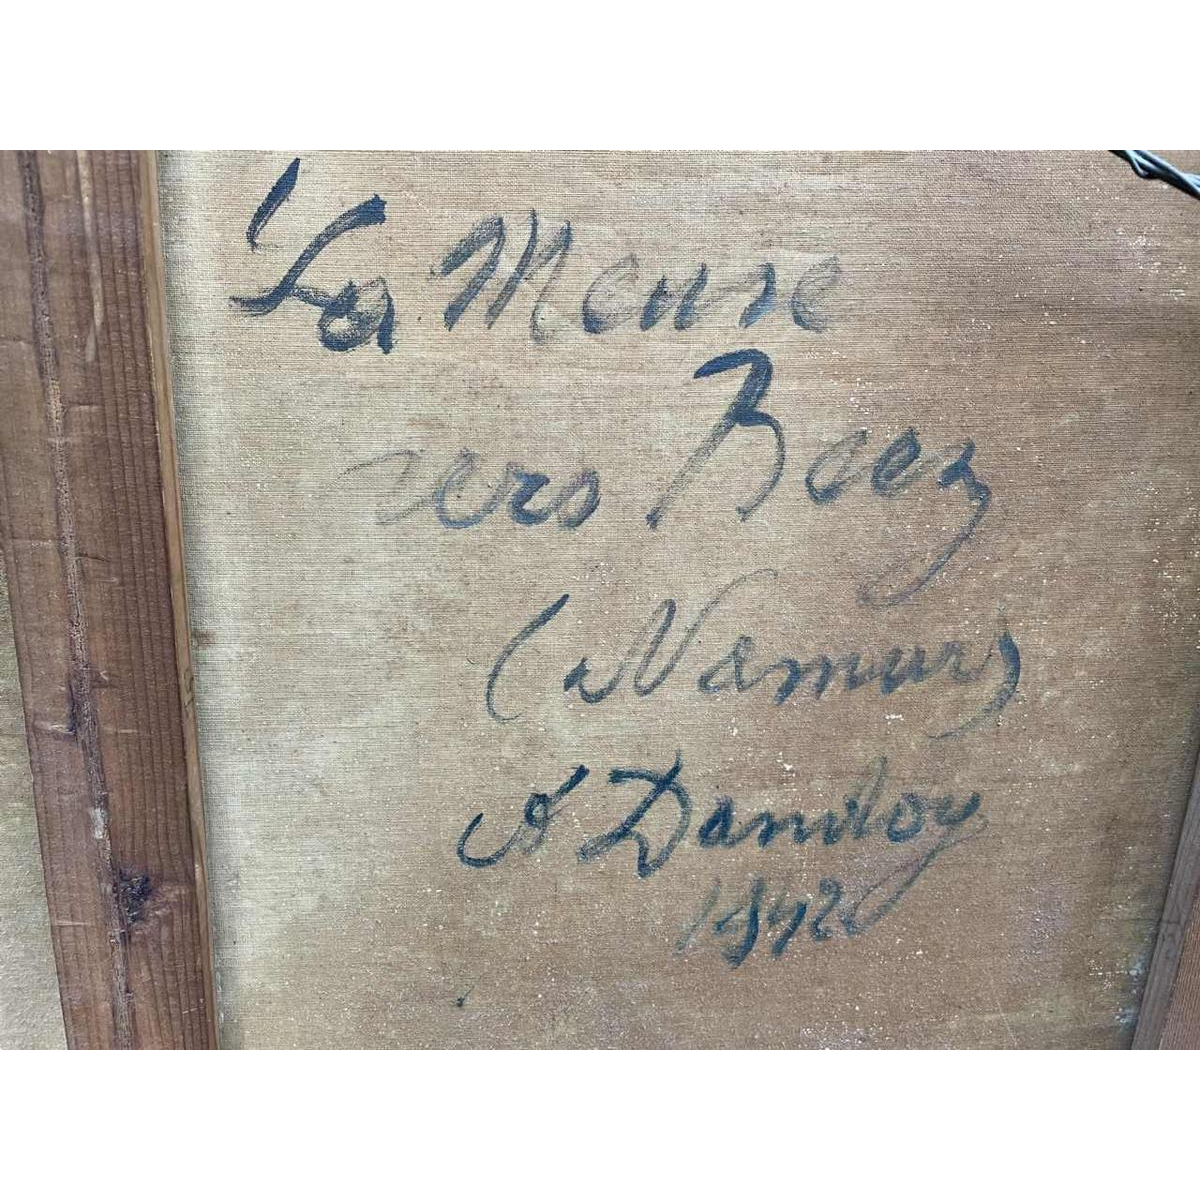 La Meuse
vers Beez
(Namur)
A Dandoy
1942